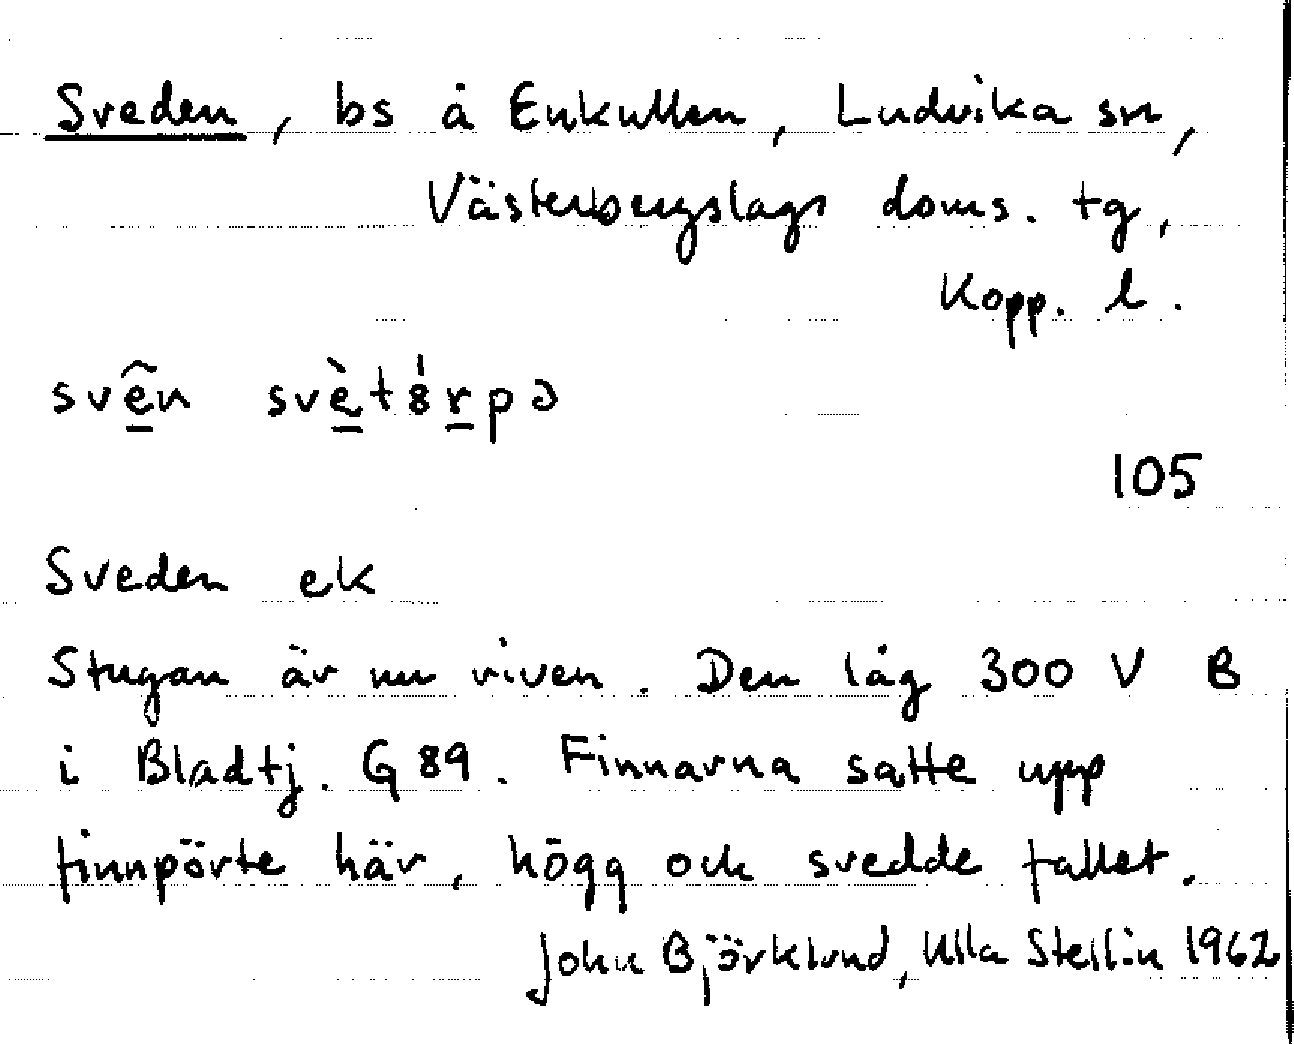 Sveden, bs å Enkullen, Ludvika sn,
Västerbergslags doms. tg,
Kopp. l.
svên svètórpə
105
Sveden ek
Stugan är nu riven. Den låg 300 V B
i Bladtj. G 89. Finnarna satte upp
finnpörte här, högg och svedde fallet.
John Björklund, Ulla Stellin 1962